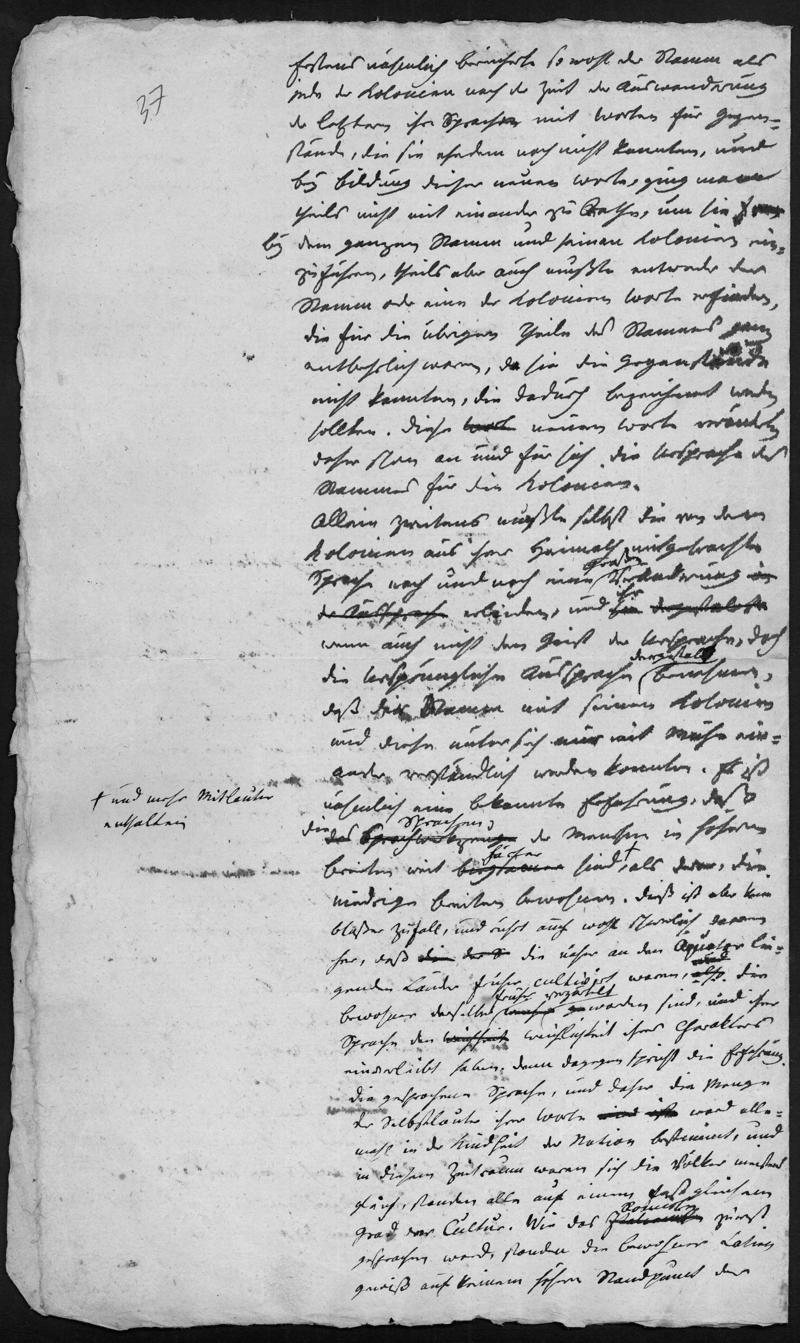 37
Erstens nähmlich bereicherte so wohl der Stamm als
jede der Kolonien nach der Zeit der Auswanderung
der letztern ihre Sprache mit Worten für Gegen=
stände, die sie ehedem noch nicht kannten, und
bey Bildung dieser neuen Worte, ging man
theils nicht mit einander zu Rathe, um sie
bey dem ganzen Stamm und seinen Kolonien ein=
zuführen, theils aber auch mußte entweder der
Stamm oder eine der Kolonien Worte erfinden,
die für die übrigen Theile des Stammes ganz
entbehrlich waren, da sie die Gegenstände
nicht kannten, die dadurch bezeichnet werden
sollten. Diese neuen Worte veränderten
daher schon an und für sich die Ursprache des
Stammes für die Kolonien.
Allein zweitens mußte selbst die von denen
Kolonien aus ihrer Heimath mitgebrachte
Sprache nach und nach eine große Veränderung in
der Aussprache erleiden, und ihr
wenn auch nicht den Geist der Ursprache, doch
die ursprüngliche Aussprache dergestalt benehmen,
daß der Stamm mit seinen Kolonien
und diese unter sich nur mit Mühe ein=
ander verständlich werden konnten. Es ist
nähmlich eine bekannte Erfahrung, daß
die Sprachen der Menschen in höhern
Breiten weit härter sind †, als derer, die
niedrige Breiten bewohnen. Dieß ist aber kein
bloßer Zufall, und rührt auch wohl schwerlich daran
her, daß die näher an den Äquator lie=
genden Länder früher cultivirt waren, und die
Bewohner derselben früher verzärtelt worden sind, und ihrer
Sprache den Weichlichkeit ihres Charakters
einverleibt haben. Denn dagegen spricht die Erfahrung.
Die gesprochene Sprache, und daher die Menge
der Selbstlaute ihrer Worte ward alle=
mahl in der Kindheit der Nation bestimmt, und
in diesem Zeitraum waren sich die Völker meistens
gleich, standen alle auf einem fast gleichem
Grad der Cultur. Wie das zuerst
gesprochen ward, standen die Bewohner Latiens
gewiß auf keinem höhern Standpunct der
† und mehr Mitlauter
enthalten